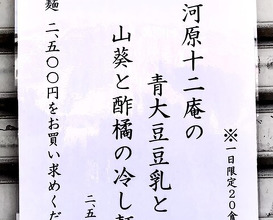 ※一日限定20食
河原十二庵の
青大豆豆乳と
山葵と酢橘の冷し麺
二、五
麺 二、五〇〇円をお買い求めくだ